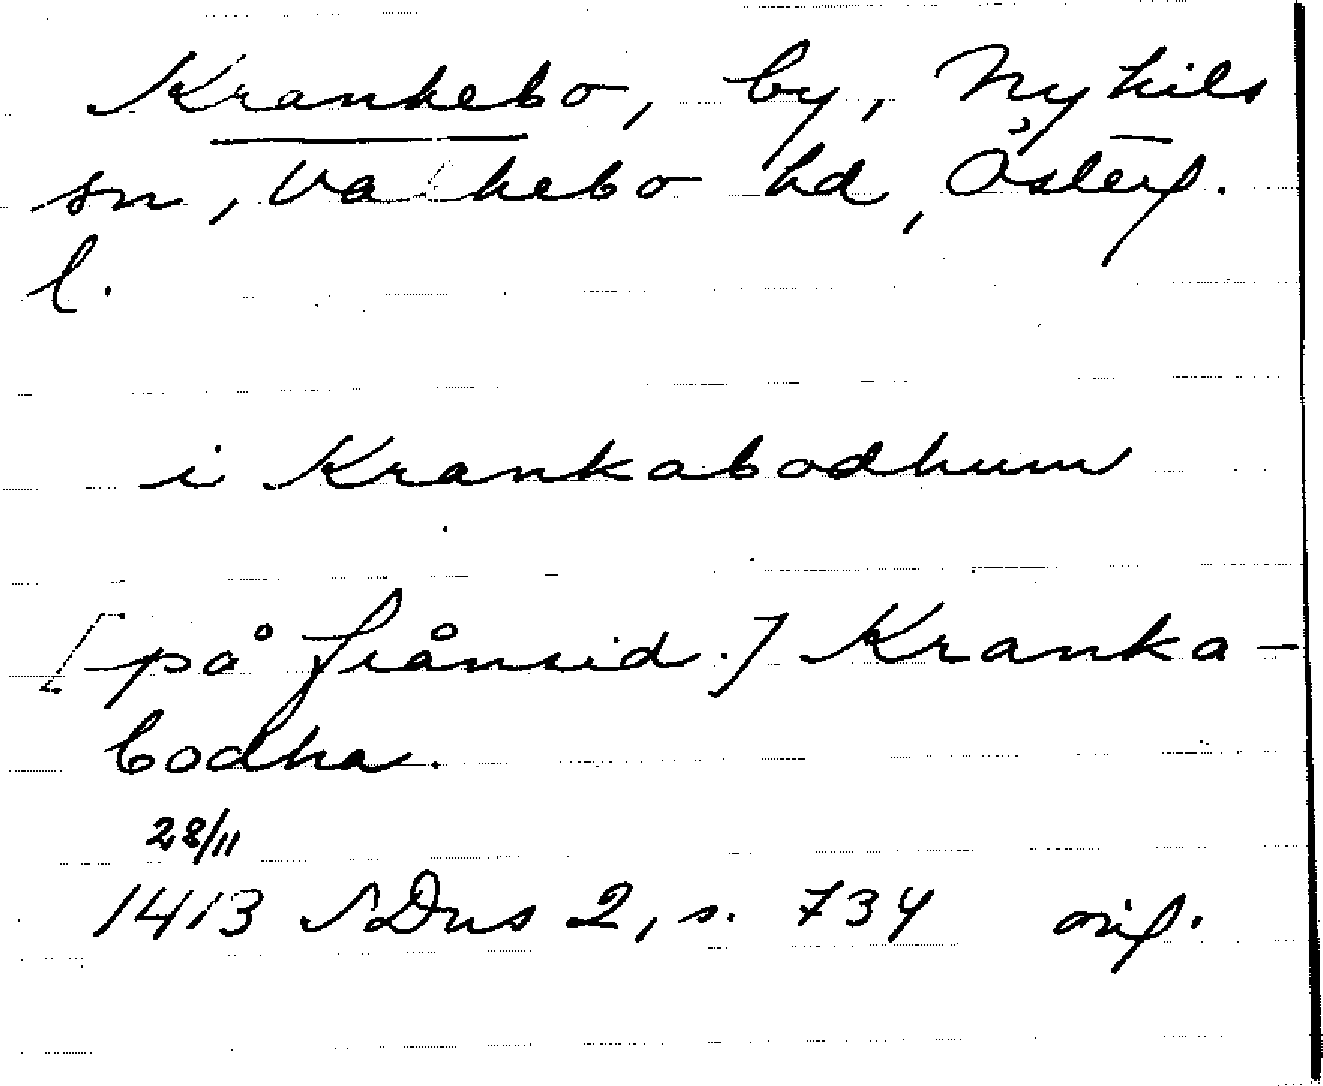 Krankebo, by, Nykils
sn, Valkebo hd, Österg.
l.
i Krankabodhum
[på frånsid.] Kranka-
bodha.
28/11
1413 SDns 2, s. 734 orig.